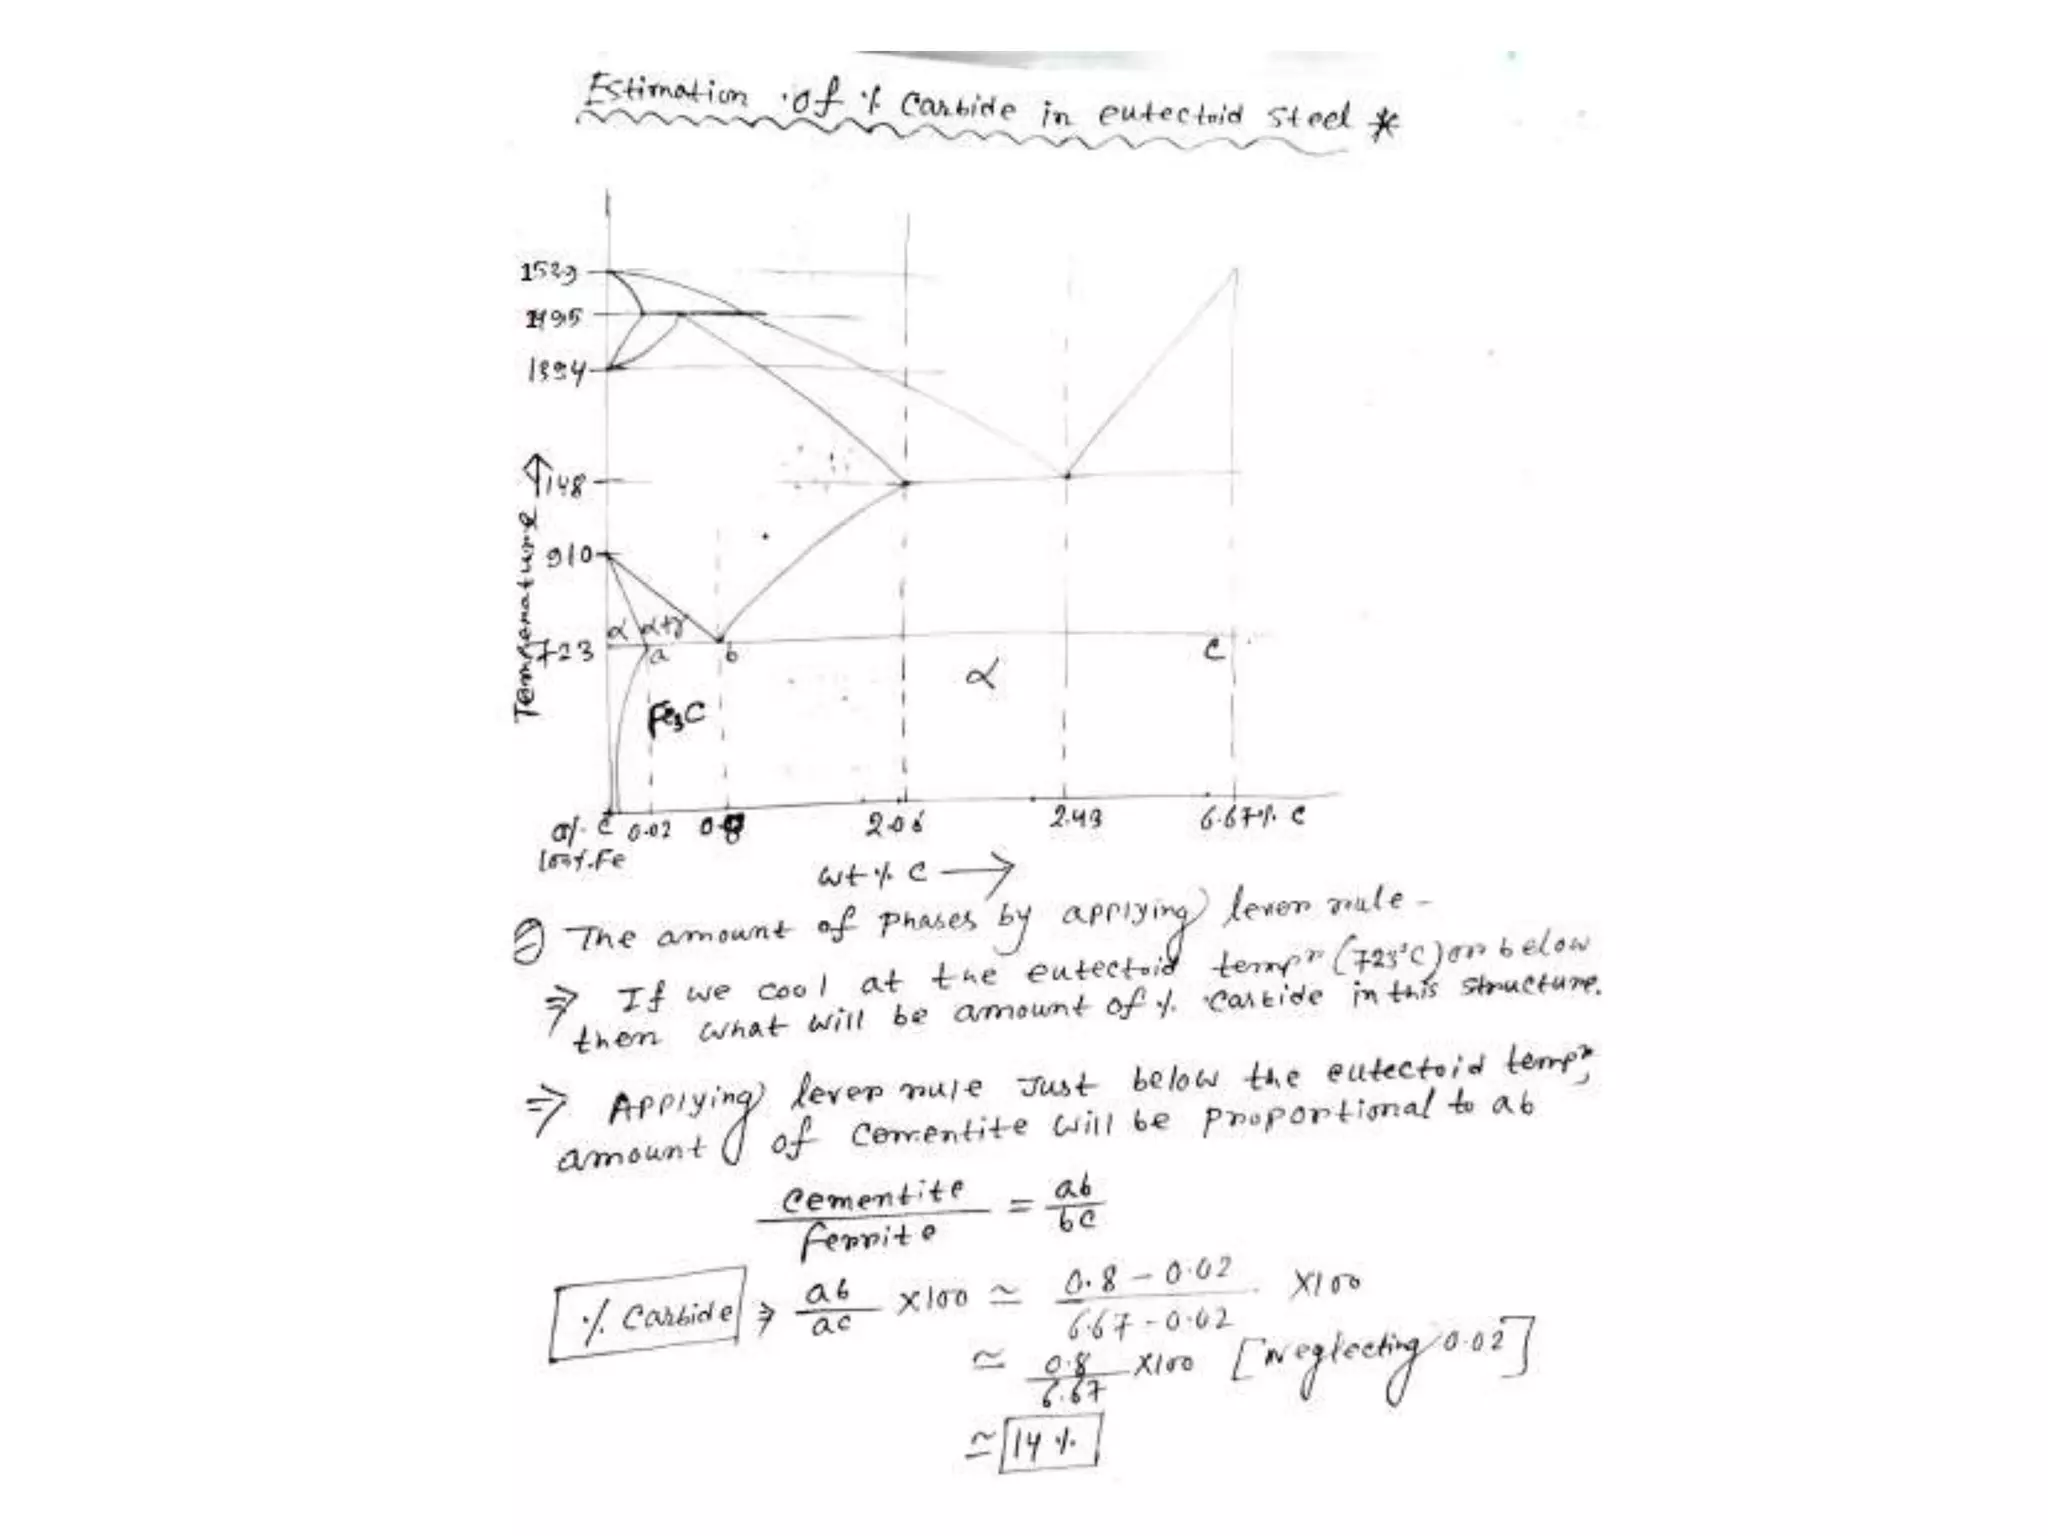 Estimation of % Carbide in eutectoid steel *
1539
1495
1394
1148
910
723
Temperature →
α α+γ
a b c
α
Fe3C
0% C 0.02 0.8 2.06 2.43 6.67% C
100%.Fe
wt % C →
The amount of phases by applying lever rule -
⇒ If we cool at the eutectoid tempr (723°C) or below
then what will be amount of % carbide in this structure.
⇒ Applying lever rule Just below the eutectoid tempr,
amount of Cementite will be proportional to ab
Cementite / Ferrite = ab / bc
% Carbide ⇒ ab / ac ×100 ≃ 0.8 - 0.02 / 6.67 - 0.02 ×100
≃ 0.8 / 6.67 ×100 [Neglecting 0.02]
≃ 14 %